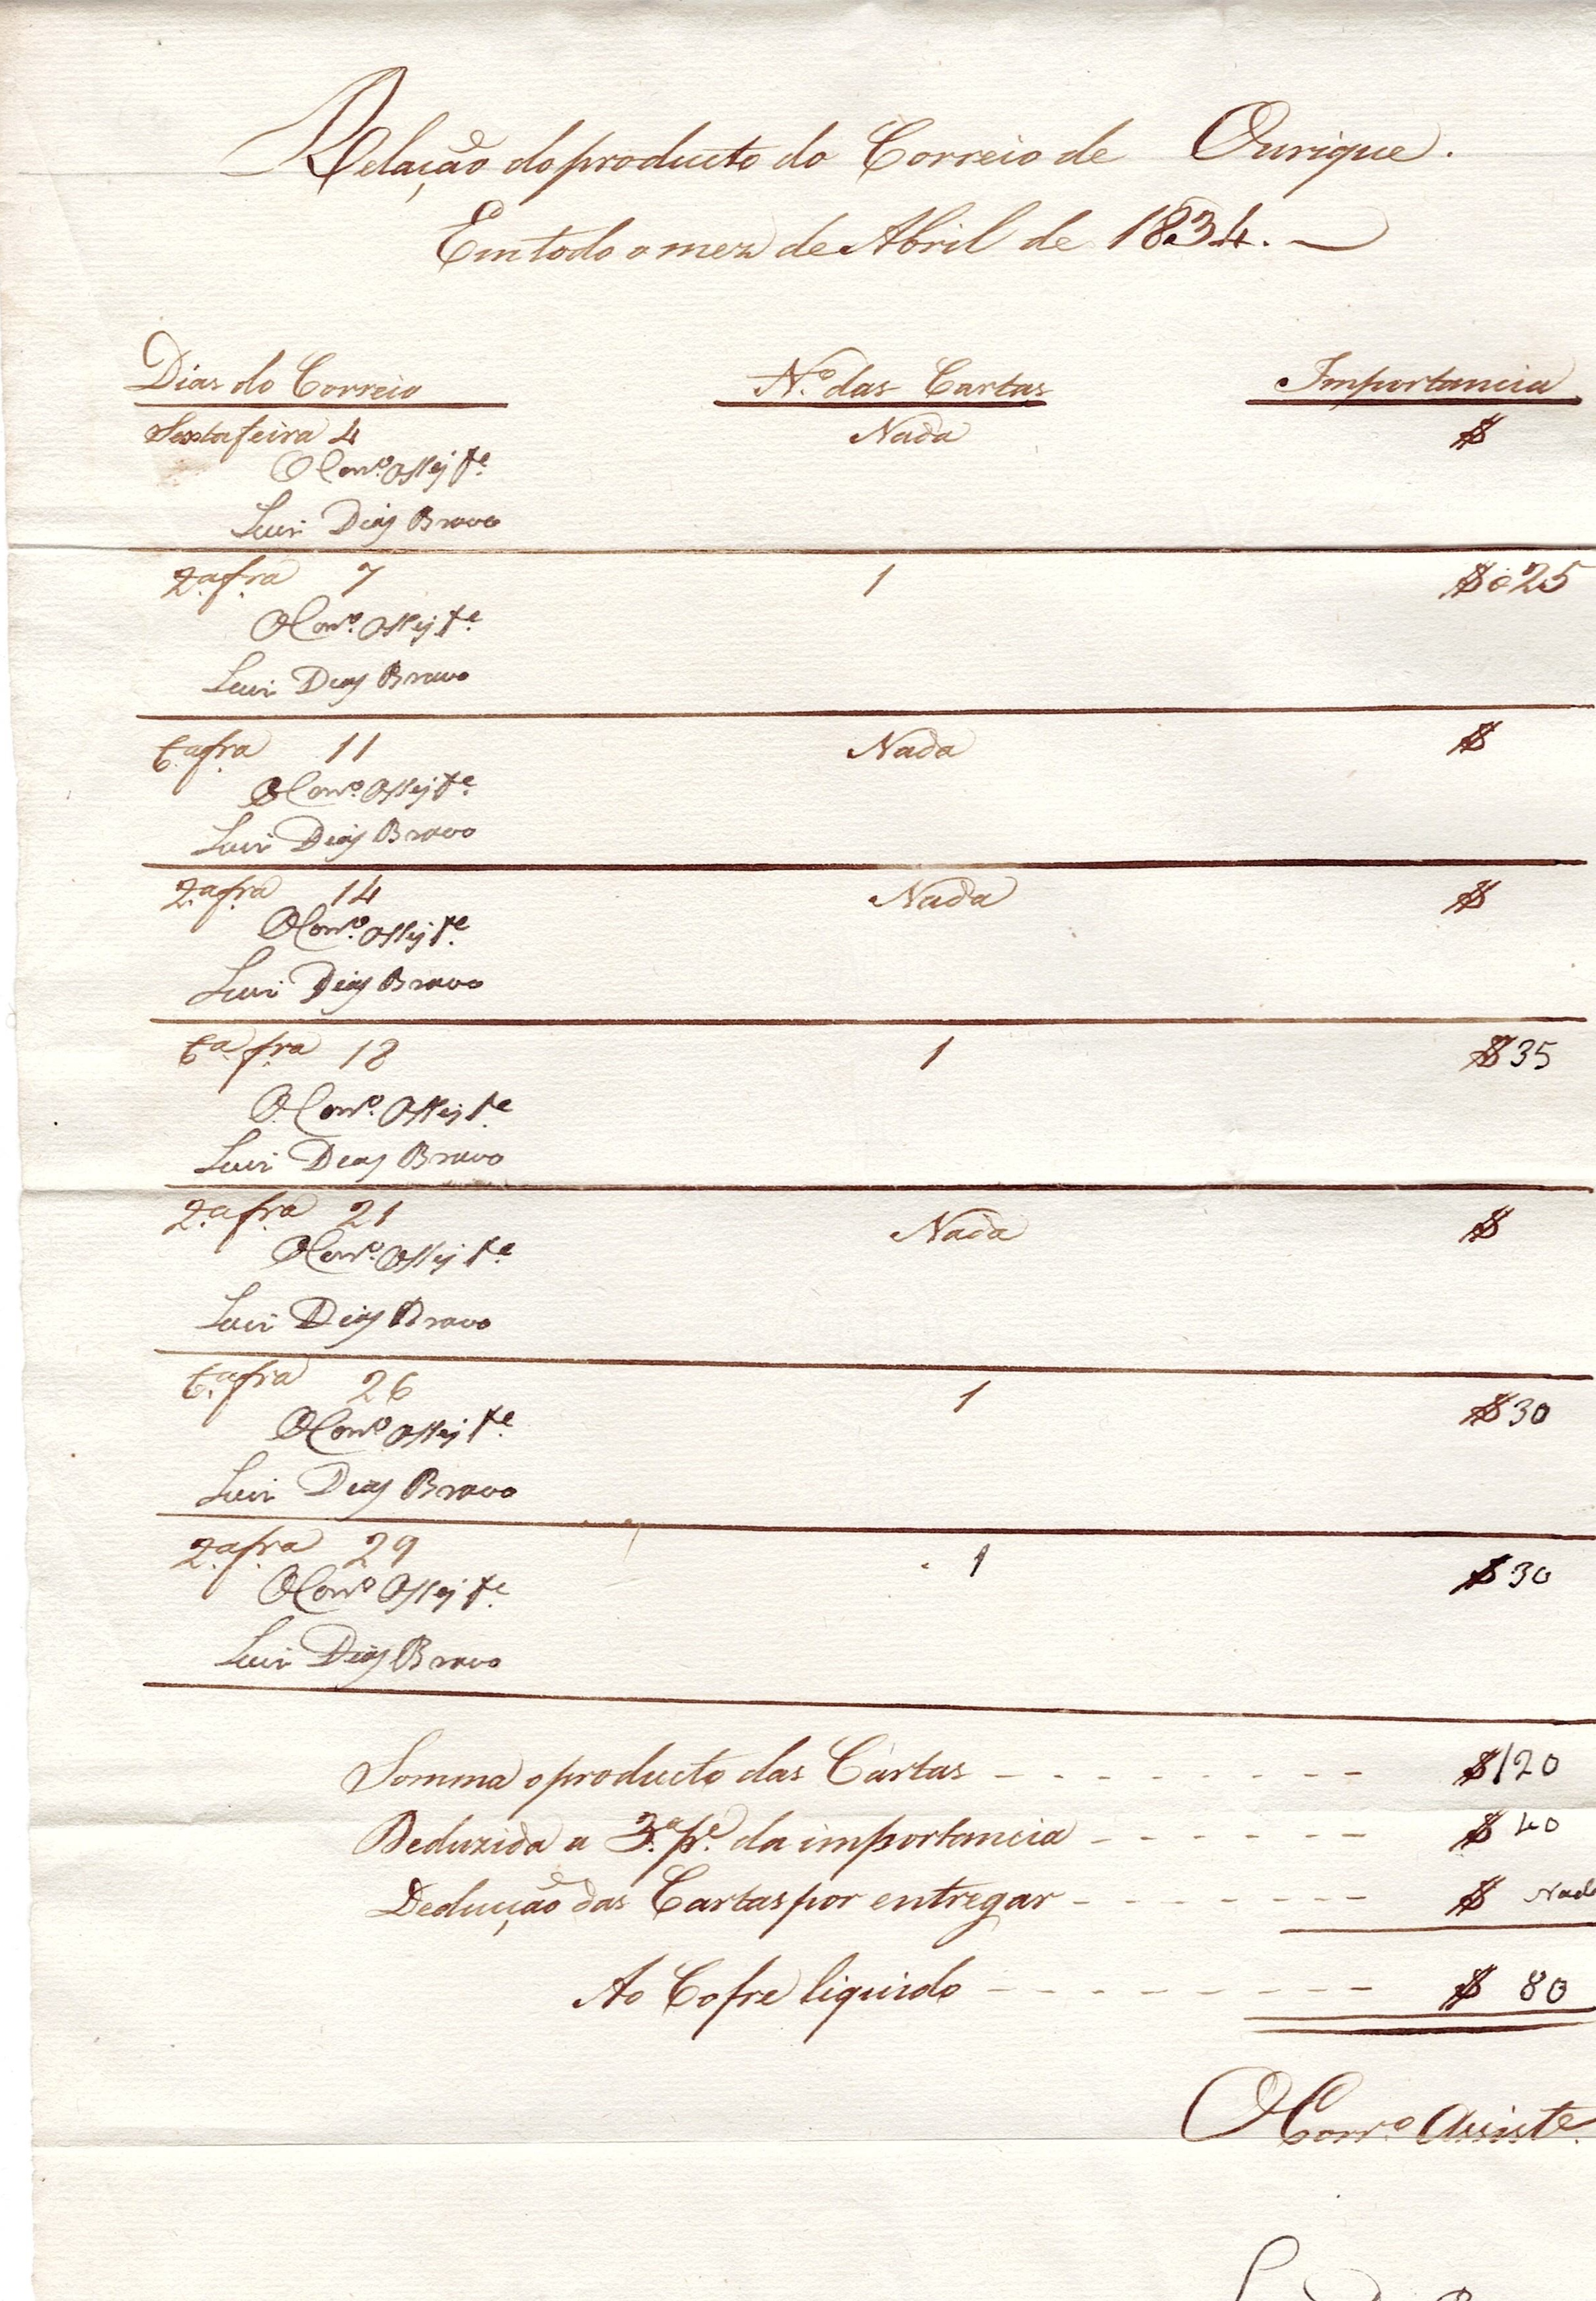 Relação do producto do Correio de Ourique.
Em todo o mez de Abril de 1834.
Dias do Correio N.º das Cartas Importancia
Sexta feira 4 Nada $
O Corr.º Assis.te
Luis Dias Bravo
2.ª f.ra 7 1 $025
O Corr.º Assis.te
Luis Dias Bravo
6.ª f.ra 11 Nada $
O Corr.º Assis.te
Luis Dias Bravo
2.ª f.ra 14 Nada $
O Corr.º Assis.te
Luis Dias Bravo
6.ª f.ra 18 1 $35
O Corr.º Assis.te
Luis Dias Bravo
2.ª f.ra 21 Nada $
O Corr.º Assis.te
Luis Dias Bravo
6.ª f.ra 26 1 $30
O Corr.º Assis.te
Luis Dias Bravo
2.ª f.ra 29 1 $30
O Corr.º Assis.te
Luis Dias Bravo
Somma o producto das Cartas - - - - - - - - - $120
Deduzida a 3.ª p.e da importancia - - - - - - - $40
Deducção das Cartas por entregar - - - - - - - $ Nad
Ao Cofre liquido - - - - - - - - - $ 80
O Corr.º Assiste.